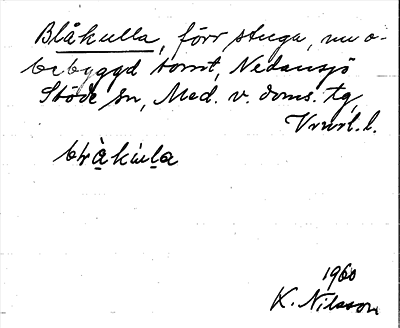 Blåkulla, förr stuga, nu o-
bebyggd tomt, Nedansjö
Stöde sn, Med. v. doms. tg,
Vrnrl. l.
1960
K. Nilsson